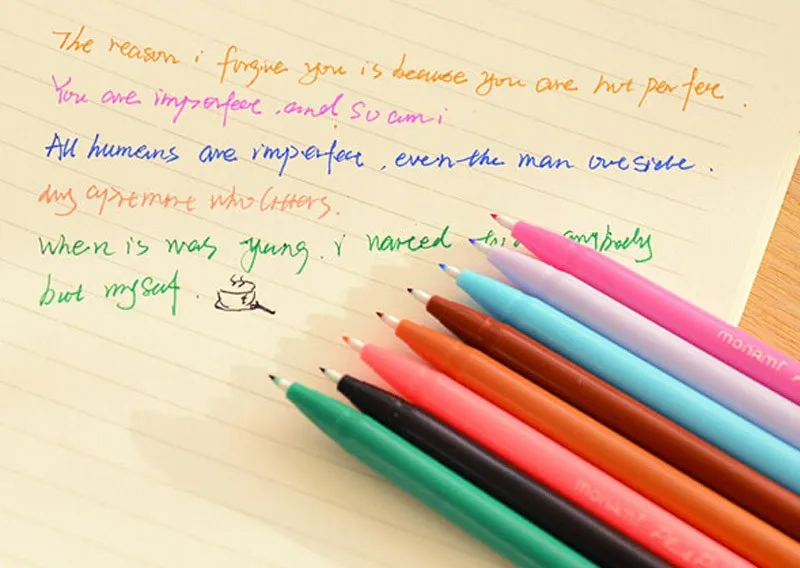 The reason i forgive you is because you are not perfect.
You are imperfect, and so am i
All humans are imperfect, even the man outside.
my apartment who litters.
when is was young. i wanted anybody
but myself.
monami
monami PLA